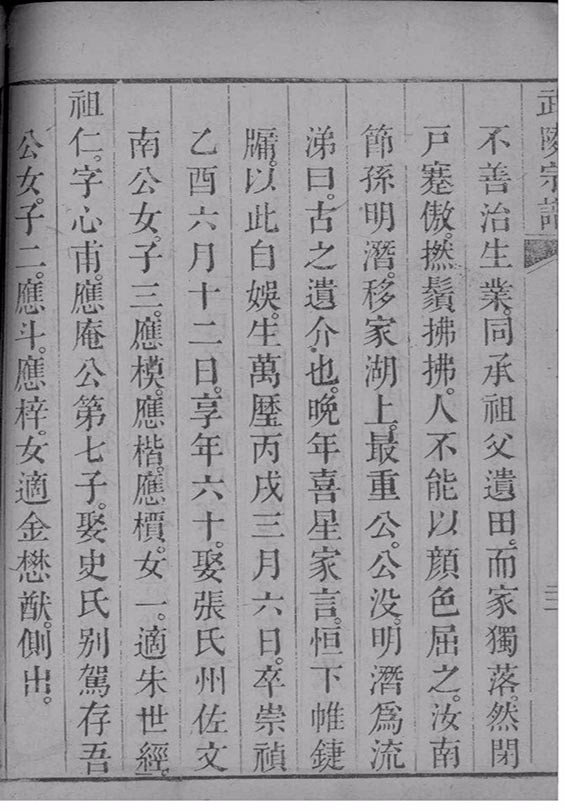 武陵宗譜
不善治生業。同承祖父遺田。而家獨落。然閉
戶蹇傲。撚鬚拂拂。人不能以顏色屈之。汝南
節孫明潛。移家湖上。最重公。公没。明潛爲流
涕曰。古之遺介也。晚年喜星家言。恒下帷鍵
牖。以此自娛。生萬曆丙戌三月六日。卒崇禎
乙酉六月十二日。享年六十。娶張氏州佐文
南公女。子三。應模。應楷。應檟。女一。適朱世經。
祖仁。字心甫。應庵公第七子。娶史氏别駕存吾
公女。子二。應斗。應梓。女適金懋猷。側出。